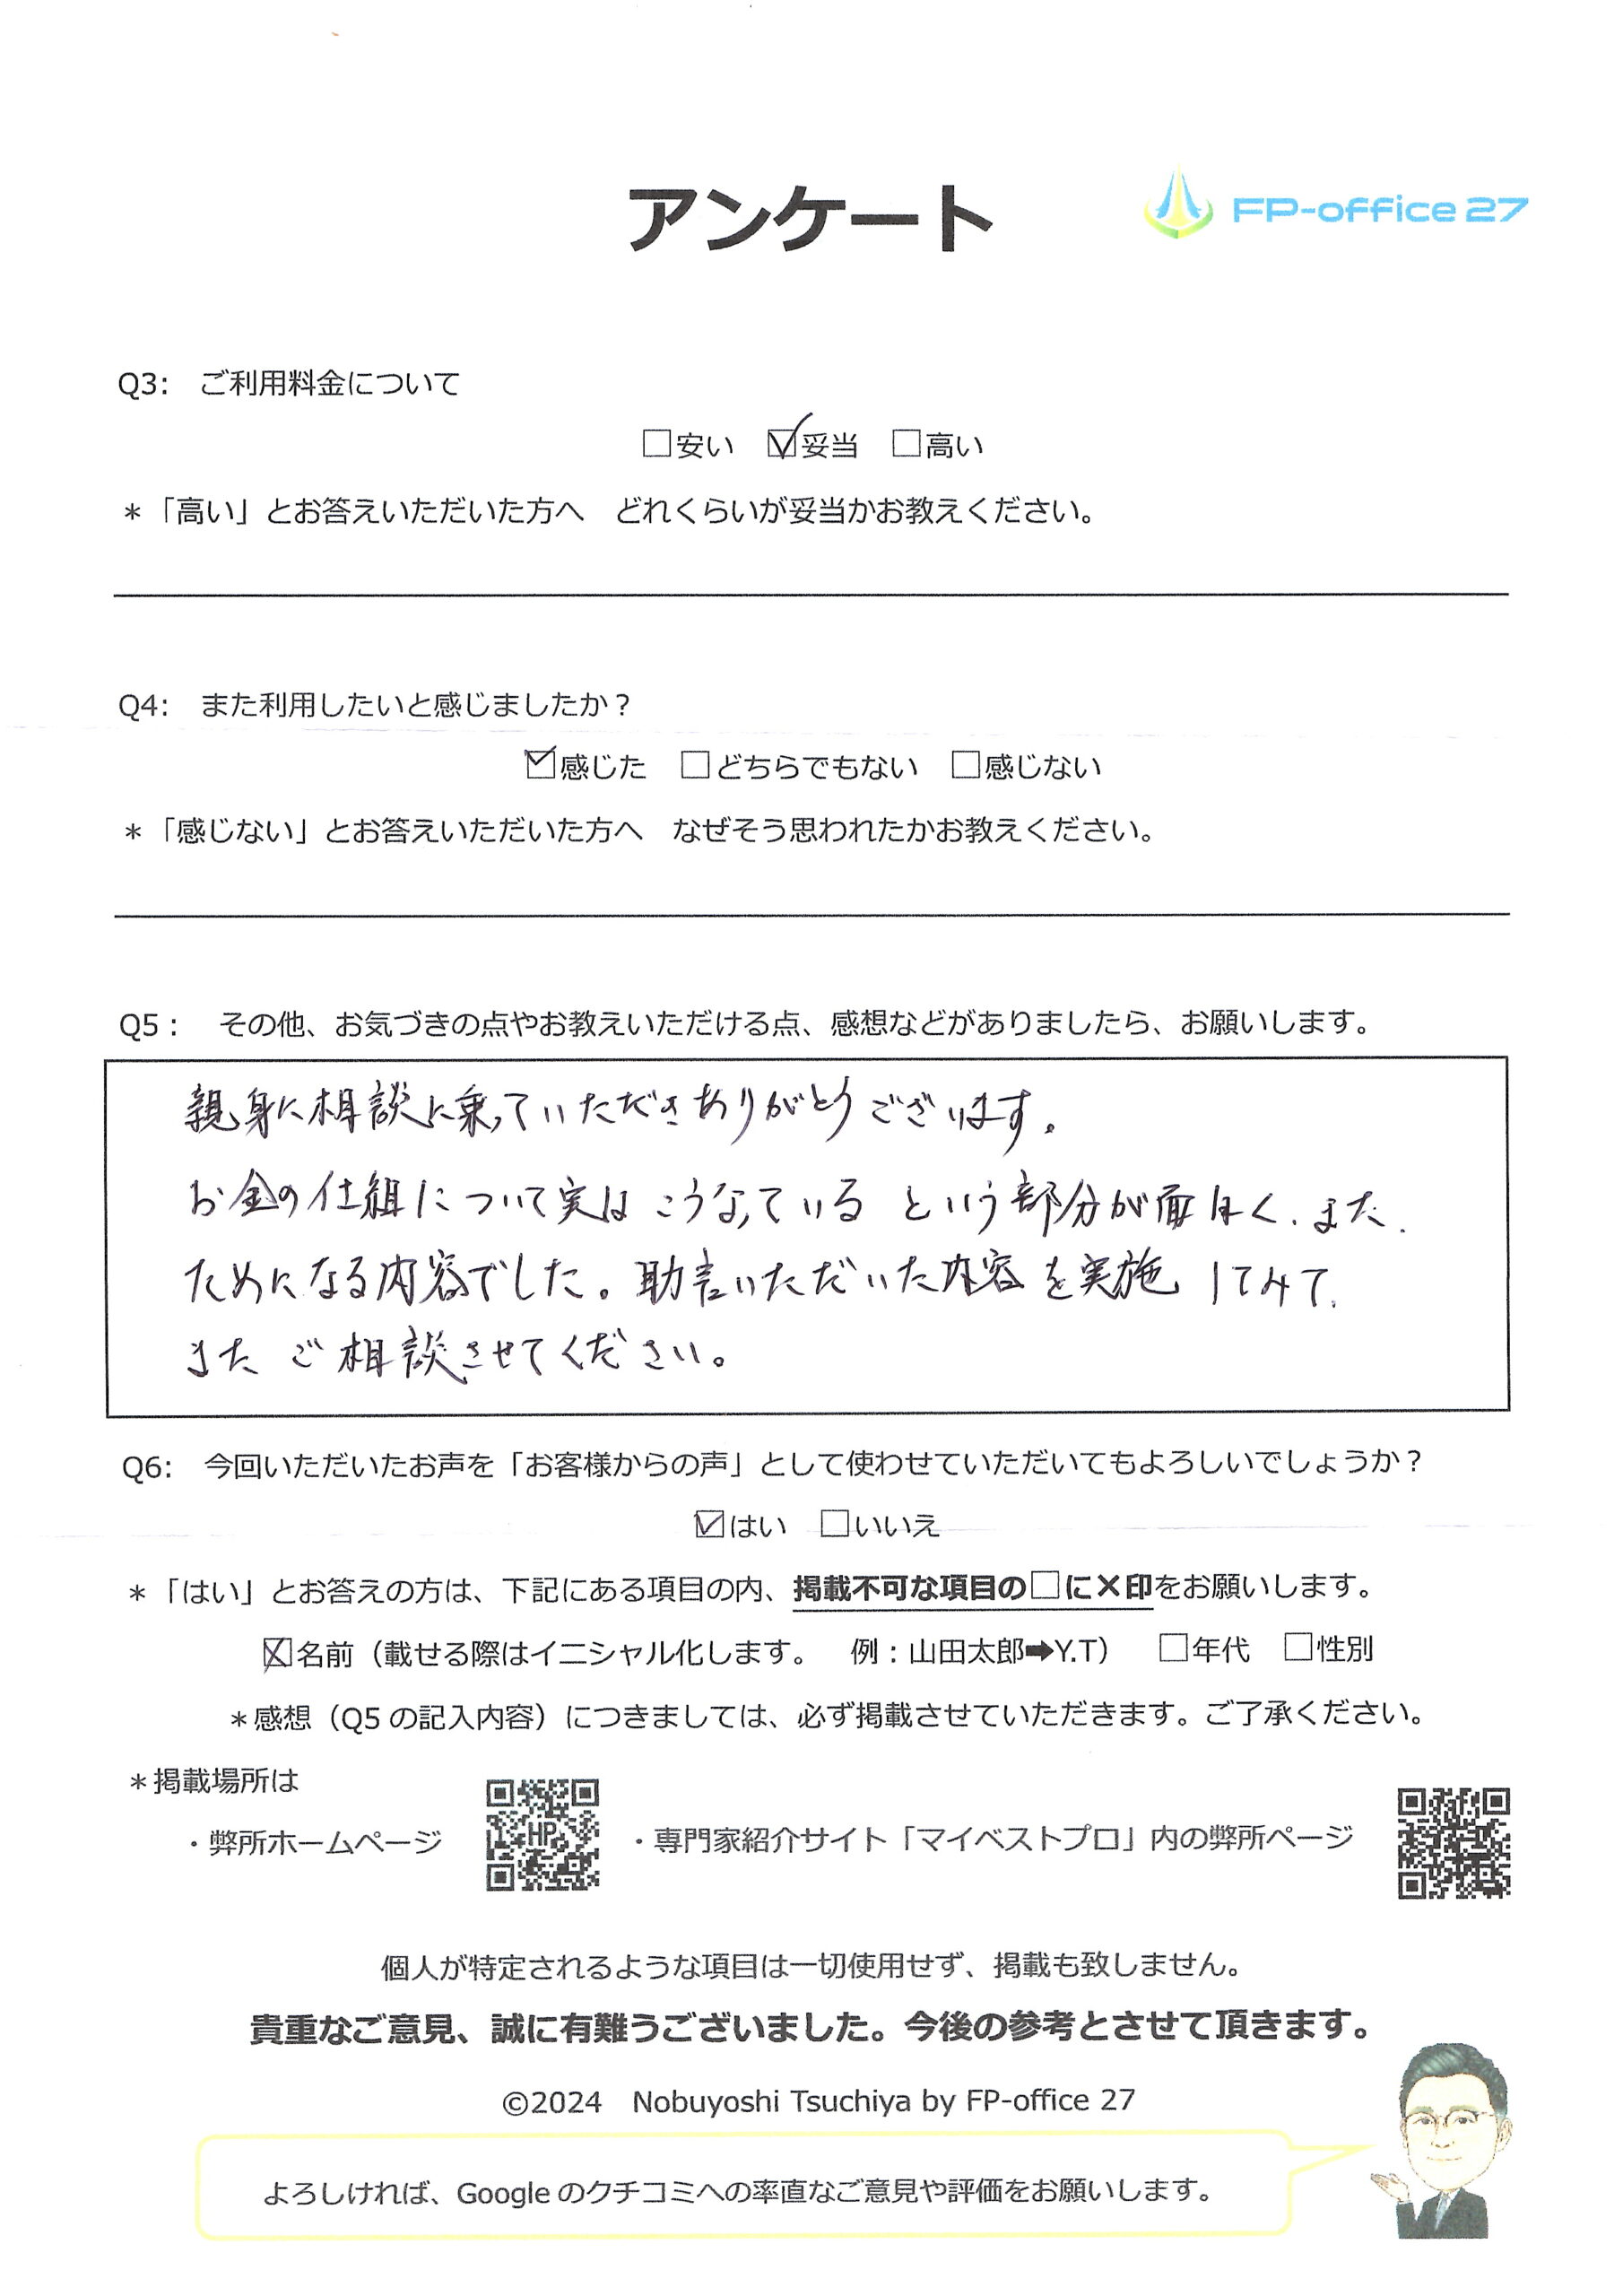 アンケート
FP-office 27
Q3: ご利用料金について
□安い ☑妥当 □高い
＊「高い」とお答えいただいた方へ どれくらいが妥当かお教えください。
Q4: また利用したいと感じましたか？
☑感じた □どちらでもない □感じない
＊「感じない」とお答えいただいた方へ なぜそう思われたかお教えください。
Q5： その他、お気づきの点やお教えいただける点、感想などがありましたら、お願いします。
親身に相談に乗っていただきありがとうございます。
お金の仕組について実はこうなっているという部分が面白く、また、
ためになる内容でした。助言いただいた内容を実施してみて、
またご相談させてください。
Q6: 今回いただいたお声を「お客様からの声」として使わせていただいてもよろしいでしょうか？
☑はい □いいえ
＊「はい」とお答えの方は、下記にある項目の内、掲載不可な項目の□に×印をお願いします。
☒名前（載せる際はイニシャル化します。 例：山田太郎➡Y.T） □年代 □性別
＊感想（Q5 の記入内容）につきましては、必ず掲載させていただきます。ご了承ください。
＊掲載場所は
・弊所ホームページ HP ・専門家紹介サイト「マイベストプロ」内の弊所ページ
個人が特定されるような項目は一切使用せず、掲載も致しません。
貴重なご意見、誠に有難うございました。今後の参考とさせて頂きます。
©2024 Nobuyoshi Tsuchiya by FP-office 27
よろしければ、Google のクチコミへの率直なご意見や評価をお願いします。